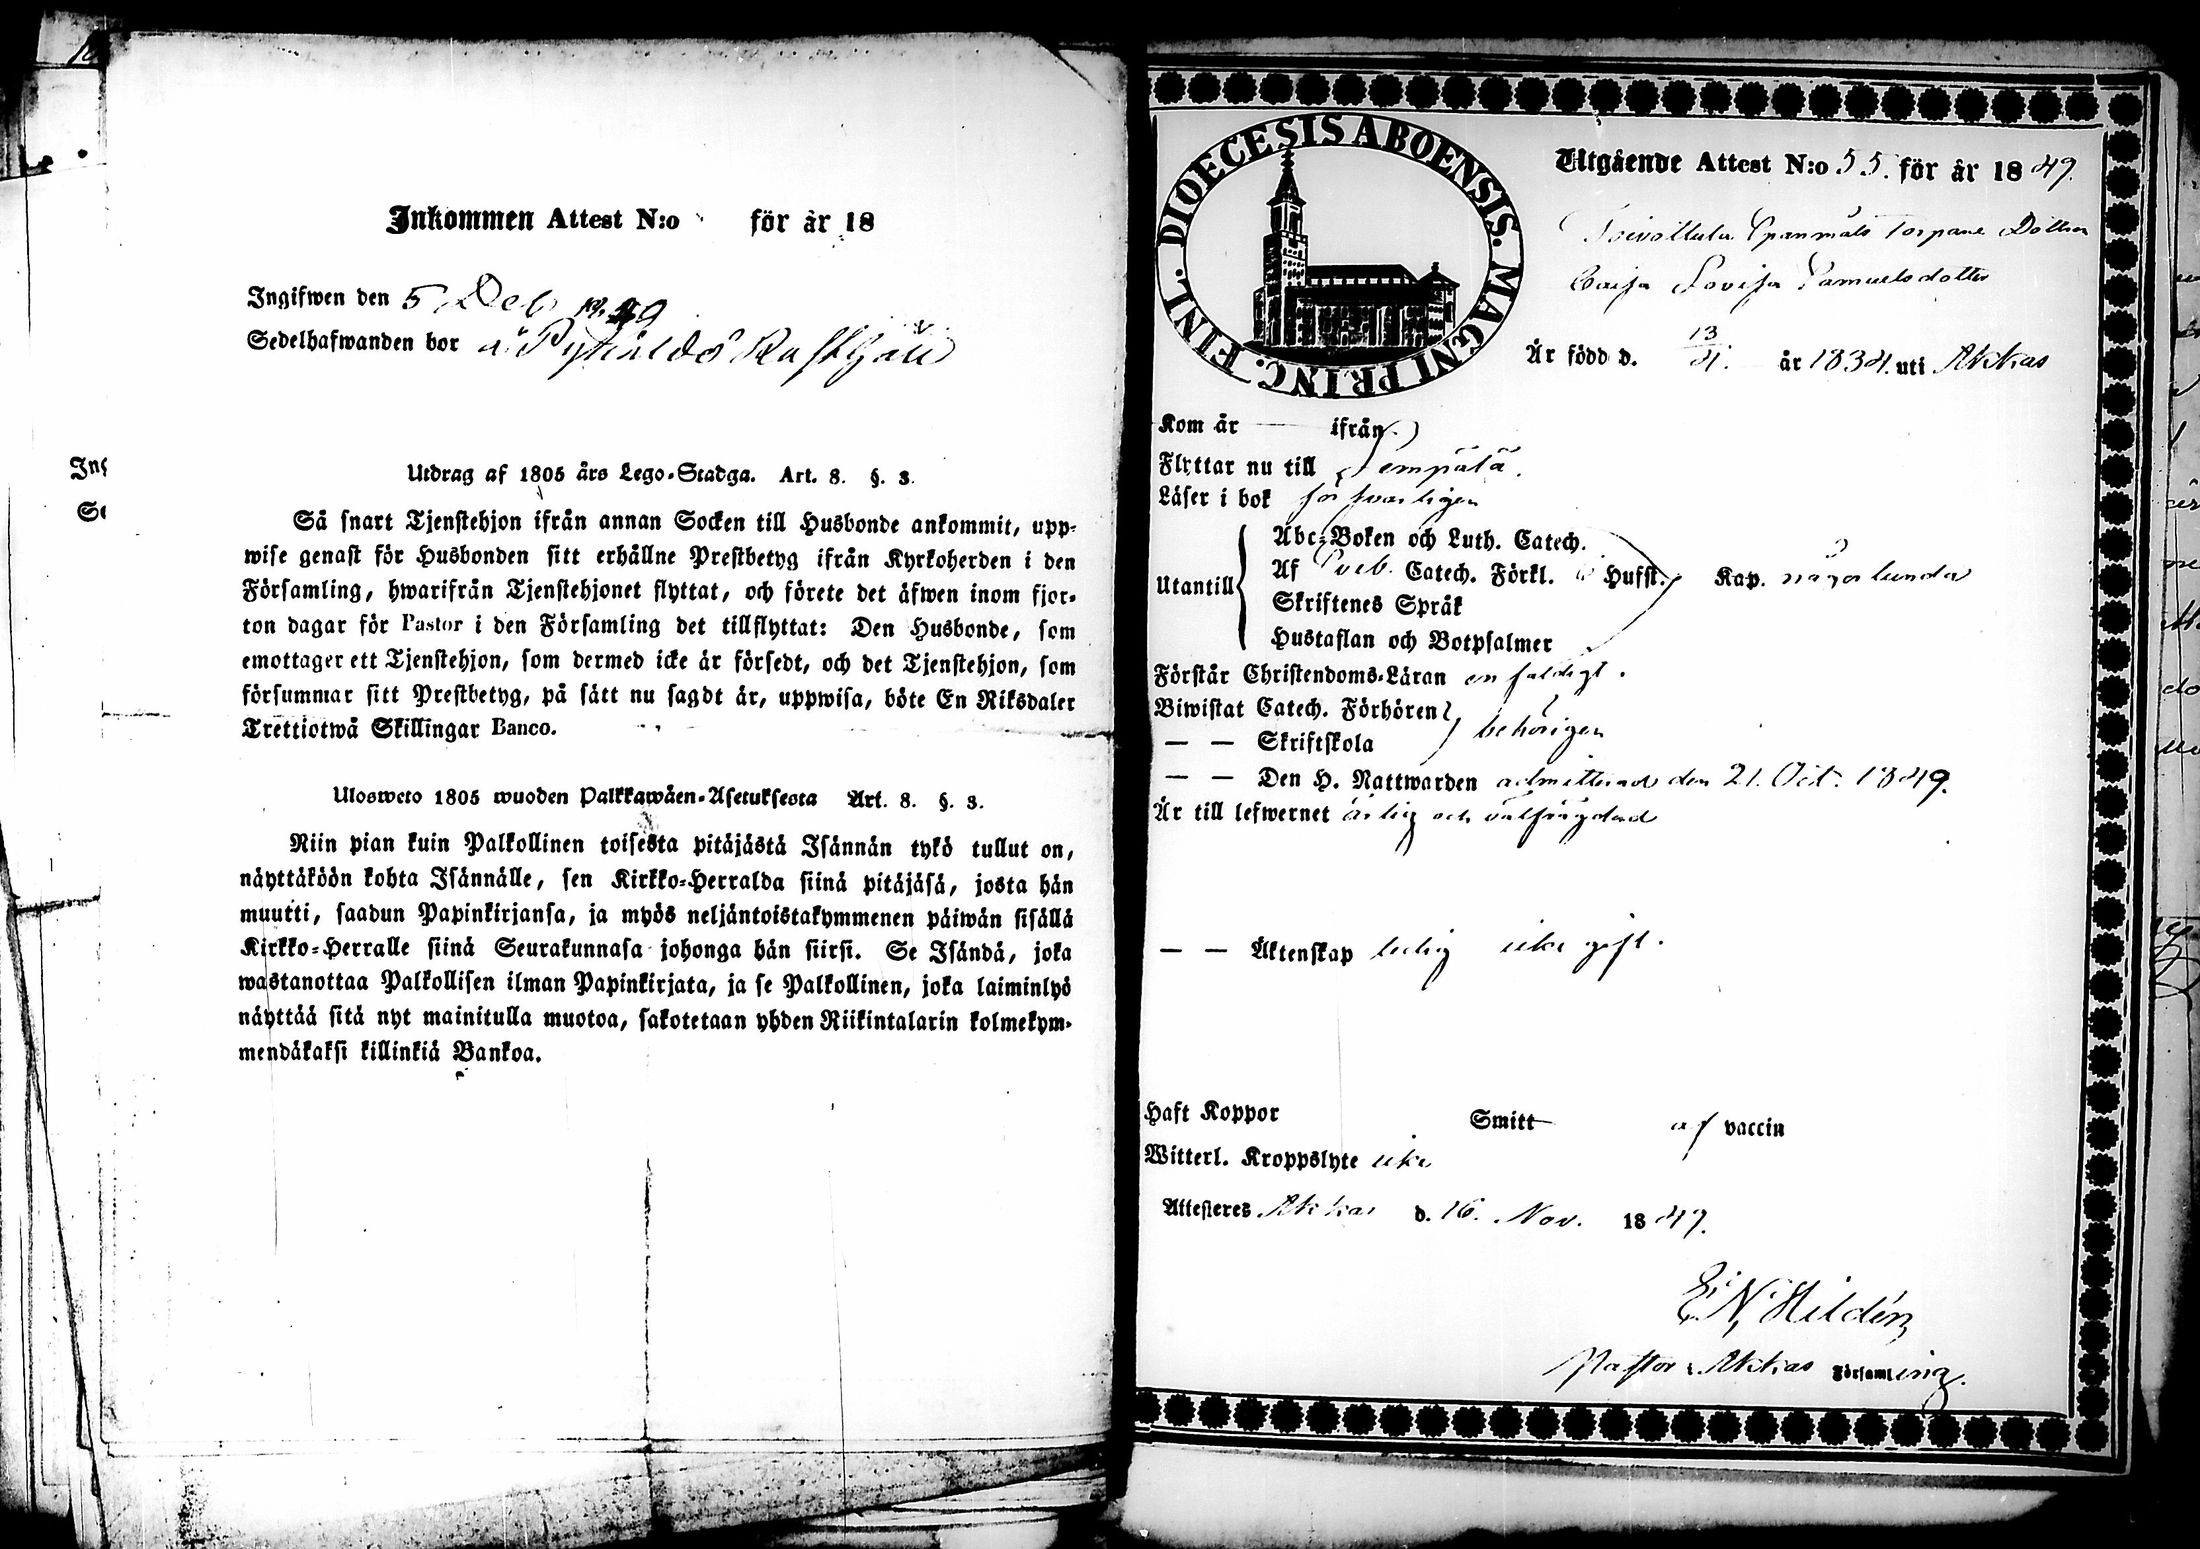 Inkommen Attest N:o för år 18
Ingifwen den 5 Deb 1849
Sedelhafwanden bor å
Utdrag af 1805 års Lego-Stadga. Art. 8. §. 3.
Så snart Tjenstehjon ifrån annan Socken till Husbonde ankommit, upp-
wise genast för Husbonden sitt erhållne Prestbetyg ifrån Kyrkoherden i den
Församling, hwarifrån Tjenstehjonet flyttat, och förete det äfwen inom fjor-
ton dagar för Pastor i den Församling det tillflyttat: Den Husbonde, som
emottager ett Tjenstehjon, som dermed icke är försedt, och det Tjenstehjon, som
försummar sitt Prestbetyg, på sätt nu sagdt är, uppwisa, böte En Riksdaler
Trettiotwå Skillingar Banco.
Ulosweto 1805 wuoden Palkkawäen-Asetuksesta Art. 8. §. 3.
Niin pian kuin Palkollinen toisesta pitäjästä Isännän tykö tullut on,
näyttäköön kohta Isännälle, sen Kirkko-Herralda siinä pitäjäsä, josta hän
muutti, saadun Papinkirjansa, ja myös neljäntoistakymmenen päiwän sisällä
Kirkko-Herralle siinä Seurakunnasa johonga hän siirsi. Se Isändä, joka
wastanottaa Palkollisen ilman Papinkirjata, ja se Palkollinen, joka laiminlyö
näyttää sitä nyt mainitulla muotoa, sakotetaan yhden Riikintalarin kolmekym-
mendäkaksi killinkiä Bankoa.
DIOECESIS ABOENSIS. MAGNI PRINC. FINL.
Utgående Attest N:o 55. för år 1849.
Torpare Dottren
Caisa Lovisa Samuelsdotter
Är född d. 13/4. år 1834. uti Akkas
Kom år — ifrån
Flyttar nu till Lempälä.
Läser i bok försvarligen
Utantill
Abc-Boken och Luth. Catech.
Af Sveb. Catech. Förkl. Hufst. Kap. någorlunda
Skriftenes Språk
Hustaflan och Botpsalmer
Förstår Christendoms-Läran enfaldigt.
Biwistat Catech. Förhören
— — Skriftskola behörigen
— — Den H. Nattwarden admitterad den 21. Oct. 1849.
Är till lefwernet ärlig och välfrägdad
— — Äktenskap ledig icke gift.
Haft Koppor Smitt af vaccin
Witterl. Kroppslyte icke
Attesteres Akkas d. 16. Nov. 1849.
E. N. Hildén
Pastor i Akkas Församling.